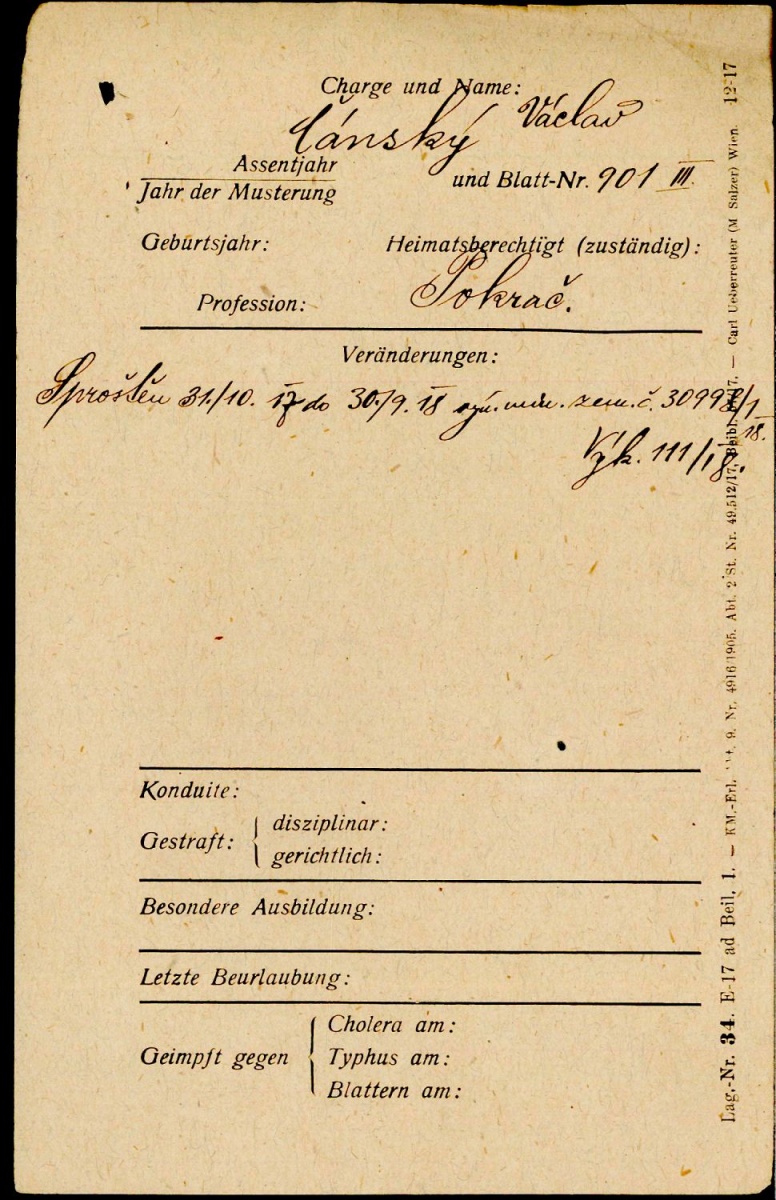 Charge und Name:
Čánský Václav
Assentjahr
Jahr der Musterung
und Blatt-Nr. 901 III.
Geburtsjahr:
Heimatsberechtigt (zuständig):
Profession:
Pokrač.
Veränderungen:
Sproštěn 31./10. 17 do 30./9. 18 min. zem. č. 30998/1
18.
Výk. 111/18.
Konduite:
Gestraft: { disziplinar:
gerichtlich:
Besondere Ausbildung:
Letzte Beurlaubung:
Geimpft gegen { Cholera am:
Typhus am:
Blattern am:
Lag.-Nr. 34. E-17 ad Beil. 1. — KM.-Erl. 9. Nr. 4916/1905. Abt. 2 St. Nr. 49.512/17, — Carl Ueberreuter (M Salzer) Wien. 12-17